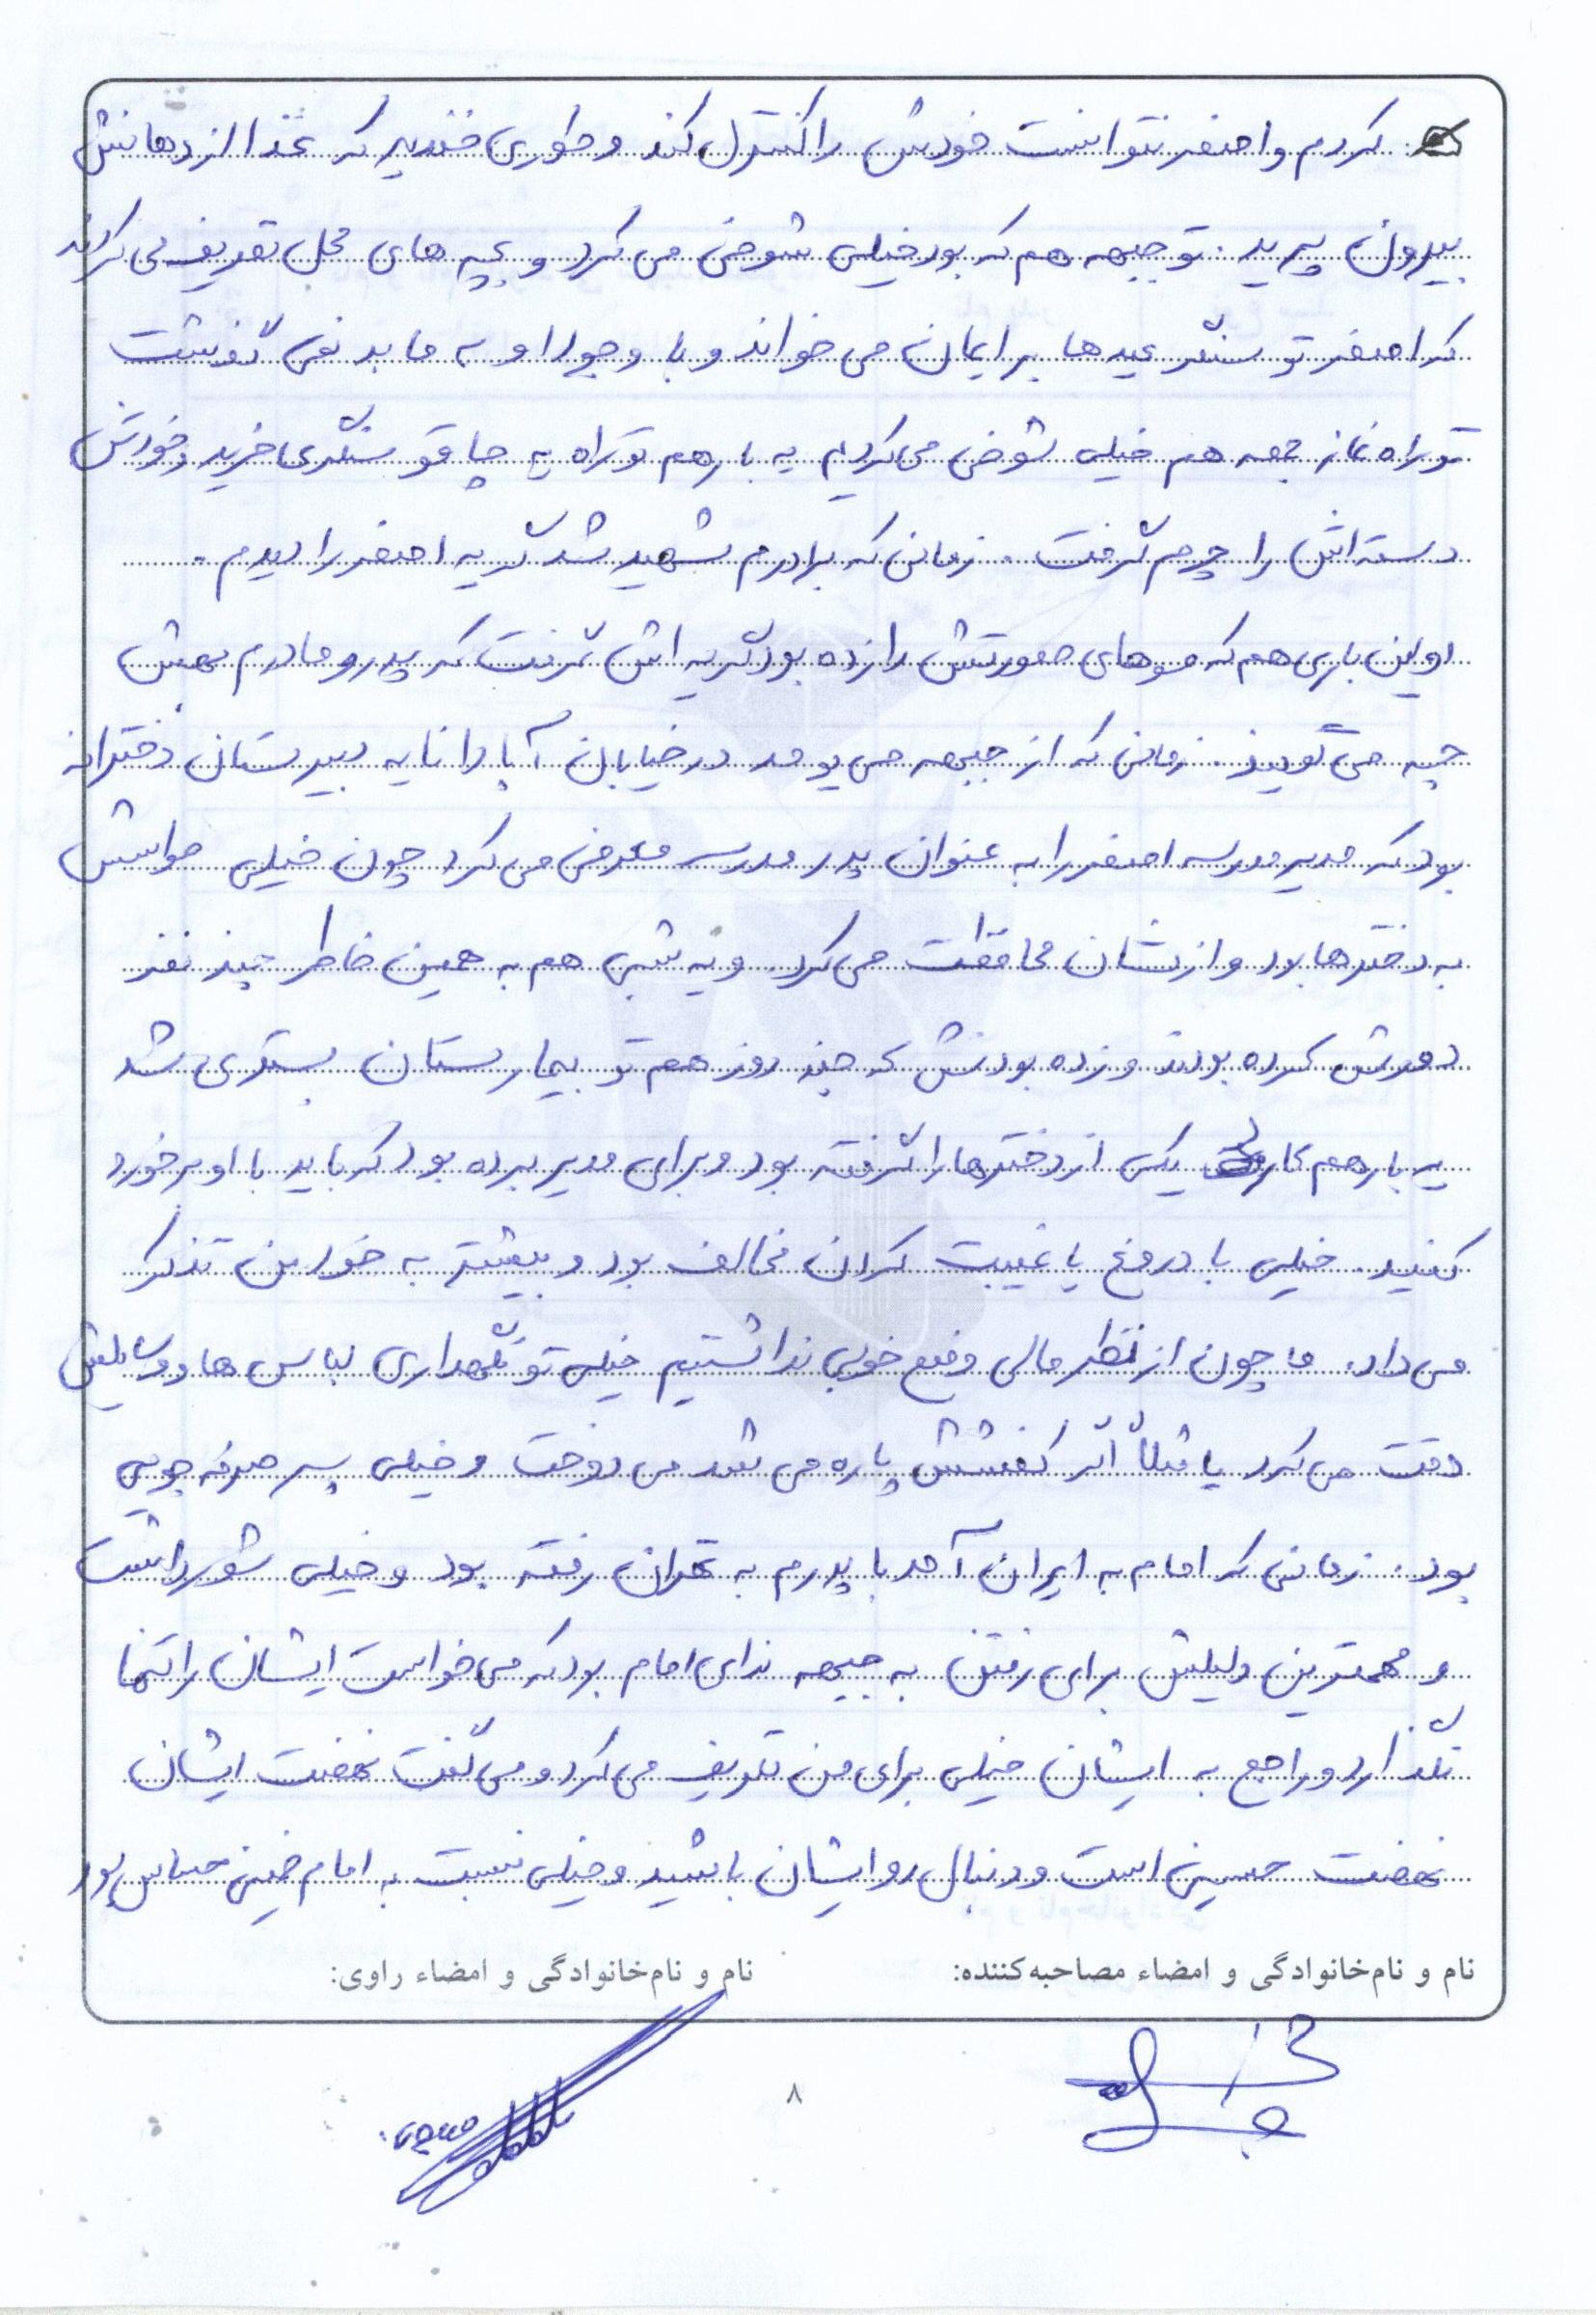 کردم و اصغر نتوانست خودش را کنترل کند و طوری خندید که غذا از دهانش
بیرون پرید. تو جبهه هم که بود خیلی شوخی می کرد و بچه های محل تعریف می کردند
که اصغر تو سنگر عیدها برایمان می خواند و با وجود او به ما بد نمی گذشت
تو راه نماز جمعه هم خیلی شوخی می کردیم یه بار هم تو راه یه چاقو سنگری خرید و خودش
دسته اش را چرم گرفت. زمانی که برادرم شهید شد گریه اصغر را دیدم.
اولین باری هم که موهای صورتش را زده بود گریه اش گرفت که پدر و مادرم بهش
چیه می گویند. زمانی که از جبهه می یومد در خیابان آپادانا یه دبیرستان دخترانه
بود که مدیر مدرسه اصغر را به عنوان پدر مدرسه معرفی می کرد چون خیلی حواسش
به دخترها بود و ازشان محافظت می کرد و یه شبی هم به همین خاطر چند نفر
دورش کرده بودند و زده بودنش که چند روز هم تو بیمارستان بستری شد
یه بار هم یکی از دخترها را گرفته بود و برای مدیر برده بود که باید با او برخورد
کنید. خیلی با دروغ یا غیبت کردن مخالف بود و بیشتر به خودمن تذکر
می داد. ما چون از نظر مالی وضع خوبی نداشتیم خیلی تو نگهداری لباس ها و وسایلش
دقت می کرد یا مثلاً اگر کفشش پاره می شد می دوخت و خیلی پسر صرفه جویی
بود. زمانی که امام به ایران آمد با پدرم به تهران رفته بود و خیلی شور داشت
و مهمترین دلیلش برای رفتن به جبهه ندای امام بود که می خواست ایشان را تنها
نگذارد و راجع به ایشان خیلی برای من تعریف می کرد و می گفت نهضت ایشان
نهضت حسینی است و دنبال رو ایشان باشید و خیلی نسبت به امام خمینی حساس بود
نام و نام‌خانوادگی و امضاء مصاحبه‌کننده: نام و نام‌خانوادگی و امضاء راوی:
۸